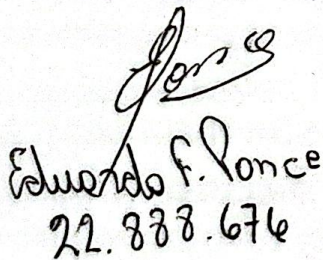 Ponce
Eduardo F. Ponce
22.888.676